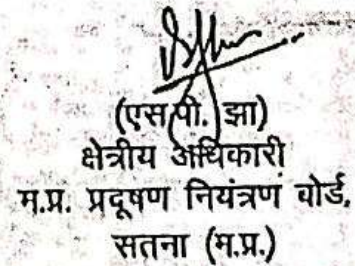 (एस.पी. झा)
क्षेत्रीय अधिकारी
म.प्र. प्रदूषण नियंत्रण बोर्ड,
सतना (म.प्र.)